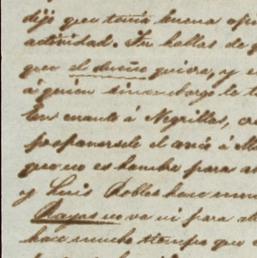 dijo que tenía buena opi
actividad. Tu hablas de q
que el dueño quiera, y e
á quien sin embargo le t
en cuanto á Negrillos, cre
proponersele el arcó á M
que no es hombre para a
y Luis Robles hace mu
Rayas no va ni para al
hace mucho tiempo que